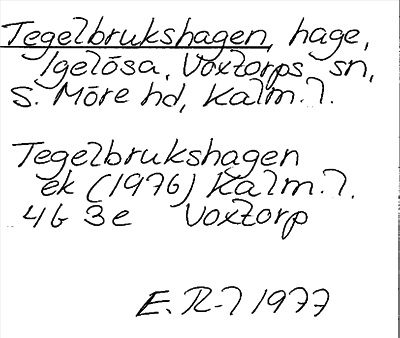 Tegelbrukshagen, hage,
Igelösa, Voxtorps sn,
S. Möre hd, Kalm. l.
Tegelbrukshagen
ek (1976) Kalm. l.
4G 3e Voxtorp
E. R-l 1977